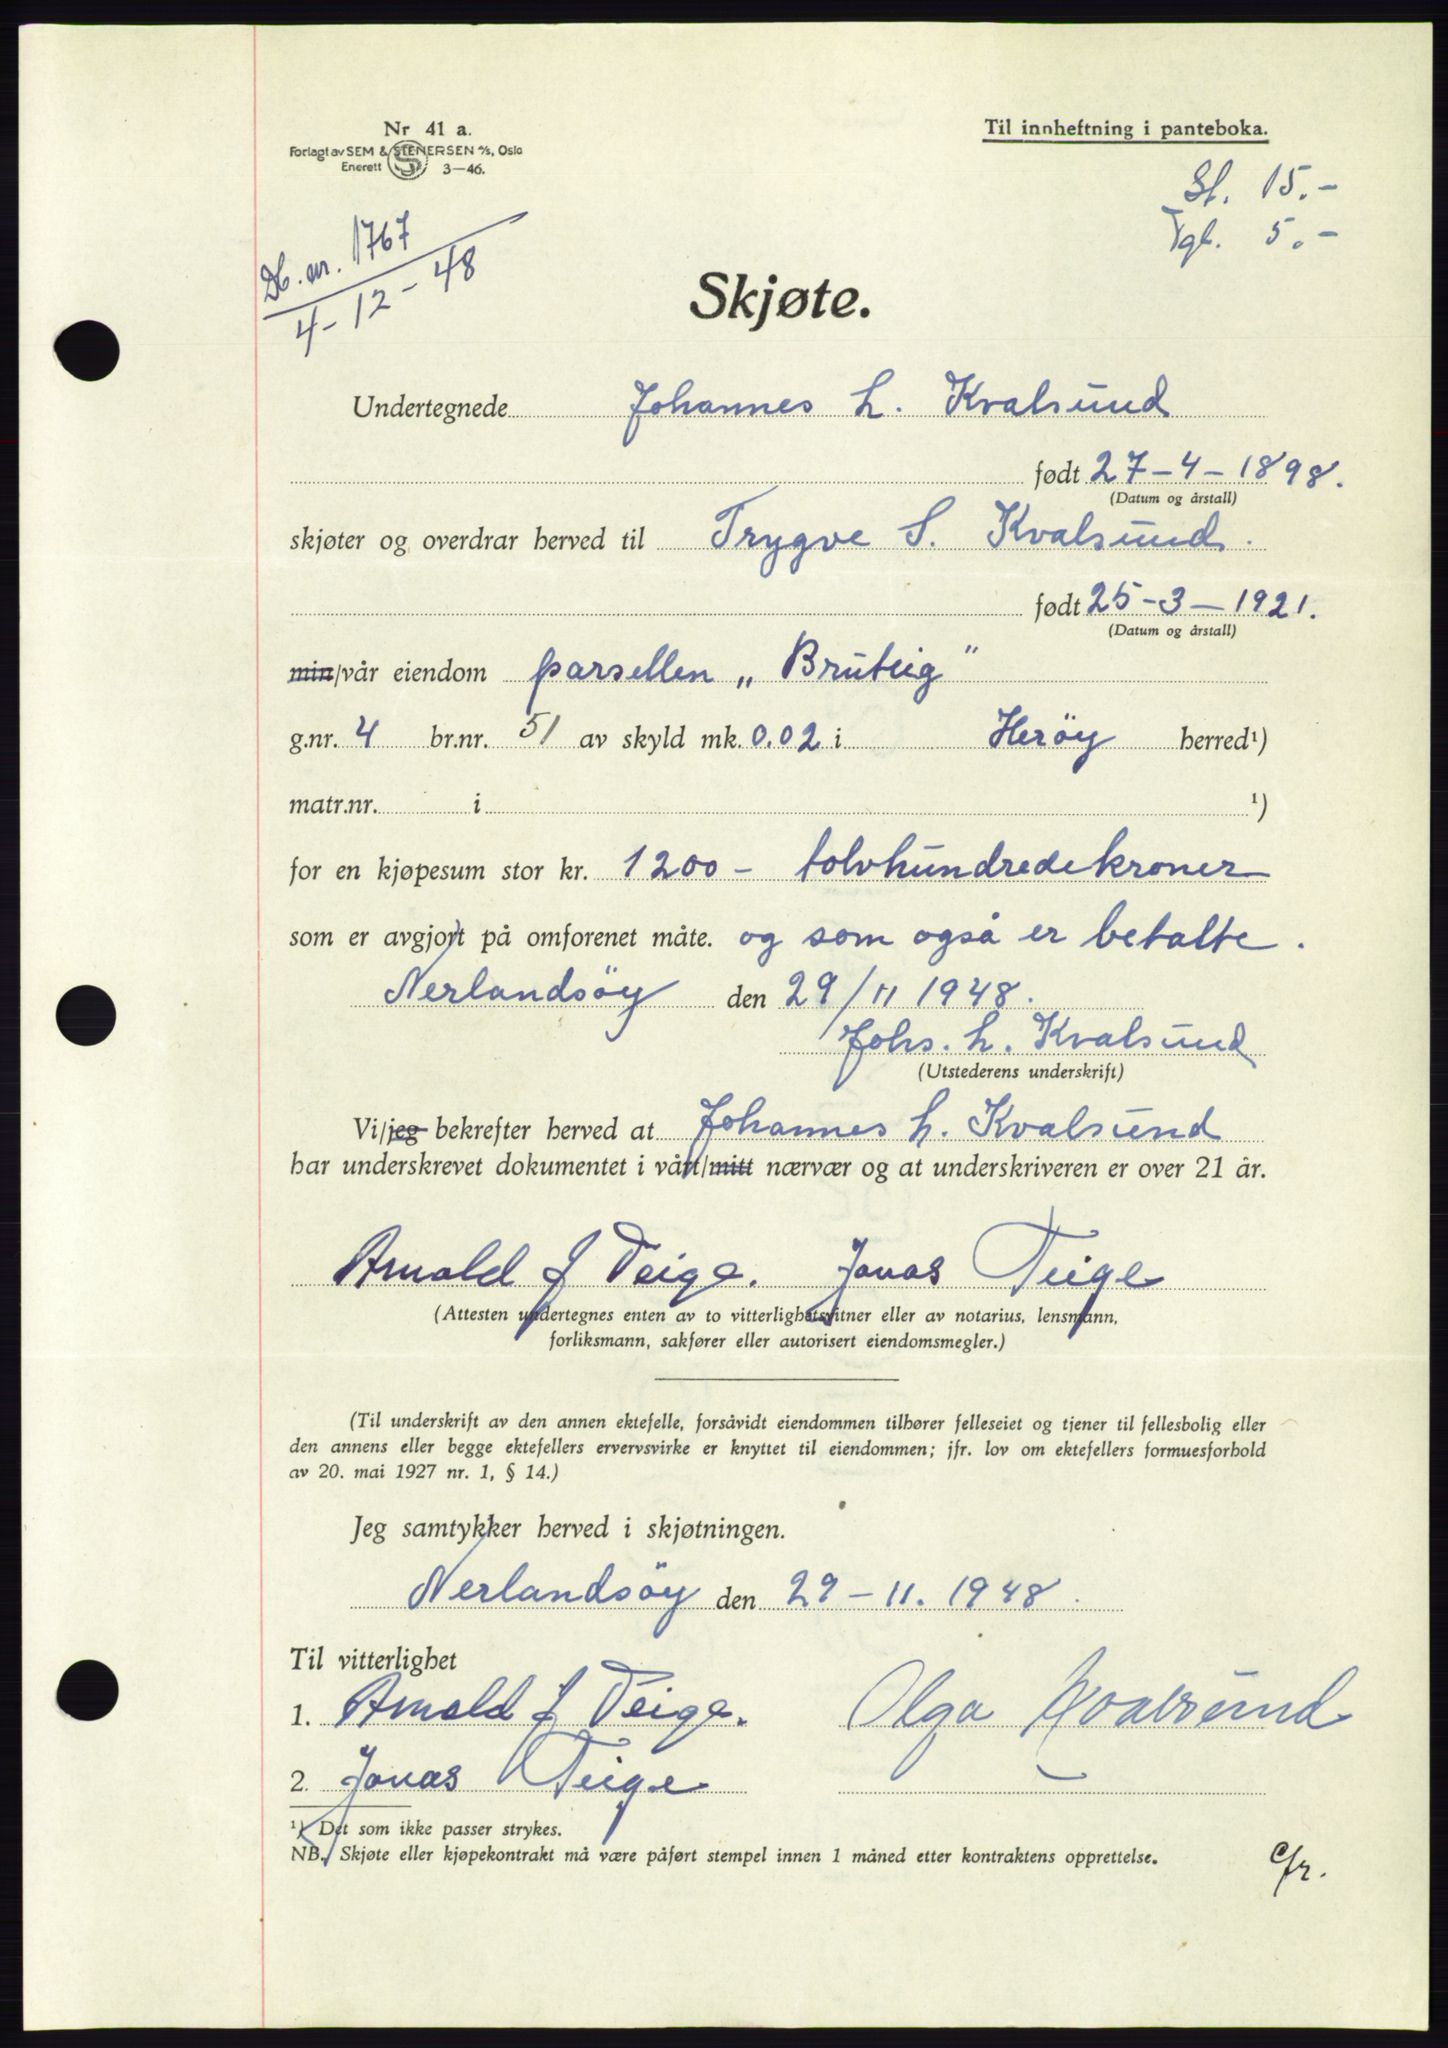 Nr 41 a.
Forlagt av SEM & STENERSEN A/S, Oslo
Enerett 3—46.
Til innheftning i panteboka.
St. 15.-
Tgl. 5.-
Db. nr. 1767
4-12-48
Skjøte.
Undertegnede Johannes L. Kvalsund
født 27-4-1898.
(Datum og årstall)
skjøter og overdrar herved til Trygve S. Kvalsund.
født 25-3-1921.
(Datum og årstall)
min/vår eiendom parsellen „Bruteig"
g.nr. 4 br.nr. 51 av skyld mk. 0.02 i Herøy herred¹)
matr.nr. i ¹)
for en kjøpesum stor kr. 1200 - tolvhundredekroner
som er avgjort på omforenet måte. og som også er betalte.
Nerlandsöy den 29/11 1948.
Johs. L. Kvalsund
(Utstederens underskrift)
Vi/jeg bekrefter herved at Johannes L. Kvalsund
har underskrevet dokumentet i vårt/mitt nærvær og at underskriveren er over 21 år.
Arnold J Teige. Jonas Teige
(Attesten undertegnes enten av to vitterlighetsvitner eller av notarius, lensmann,
forliksmann, sakfører eller autorisert eiendomsmegler.)
(Til underskrift av den annen ektefelle, forsåvidt eiendommen tilhører felleseiet og tjener til fellesbolig eller
den annens eller begge ektefellers ervervsvirke er knyttet til eiendommen; jfr. lov om ektefellers formuesforhold
av 20. mai 1927 nr. 1, § 14.)
Jeg samtykker herved i skjøtningen.
Nerlandsöy den 29-11. 1948.
Til vitterlighet
1. Arnold J Teige. Olga Kvalsund
2. Jonas Teige
¹) Det som ikke passer strykes.
NB. Skjøte eller kjøpekontrakt må være påført stempel innen 1 måned etter kontraktens opprettelse.